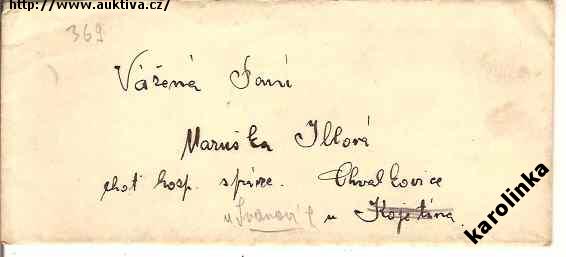 http://www.auktiva.cz/
369
Vážená Paní
Maruška Illová
choť hosp. správce. Chvalkovice
u Ivanovic u Kojetína
karolinka